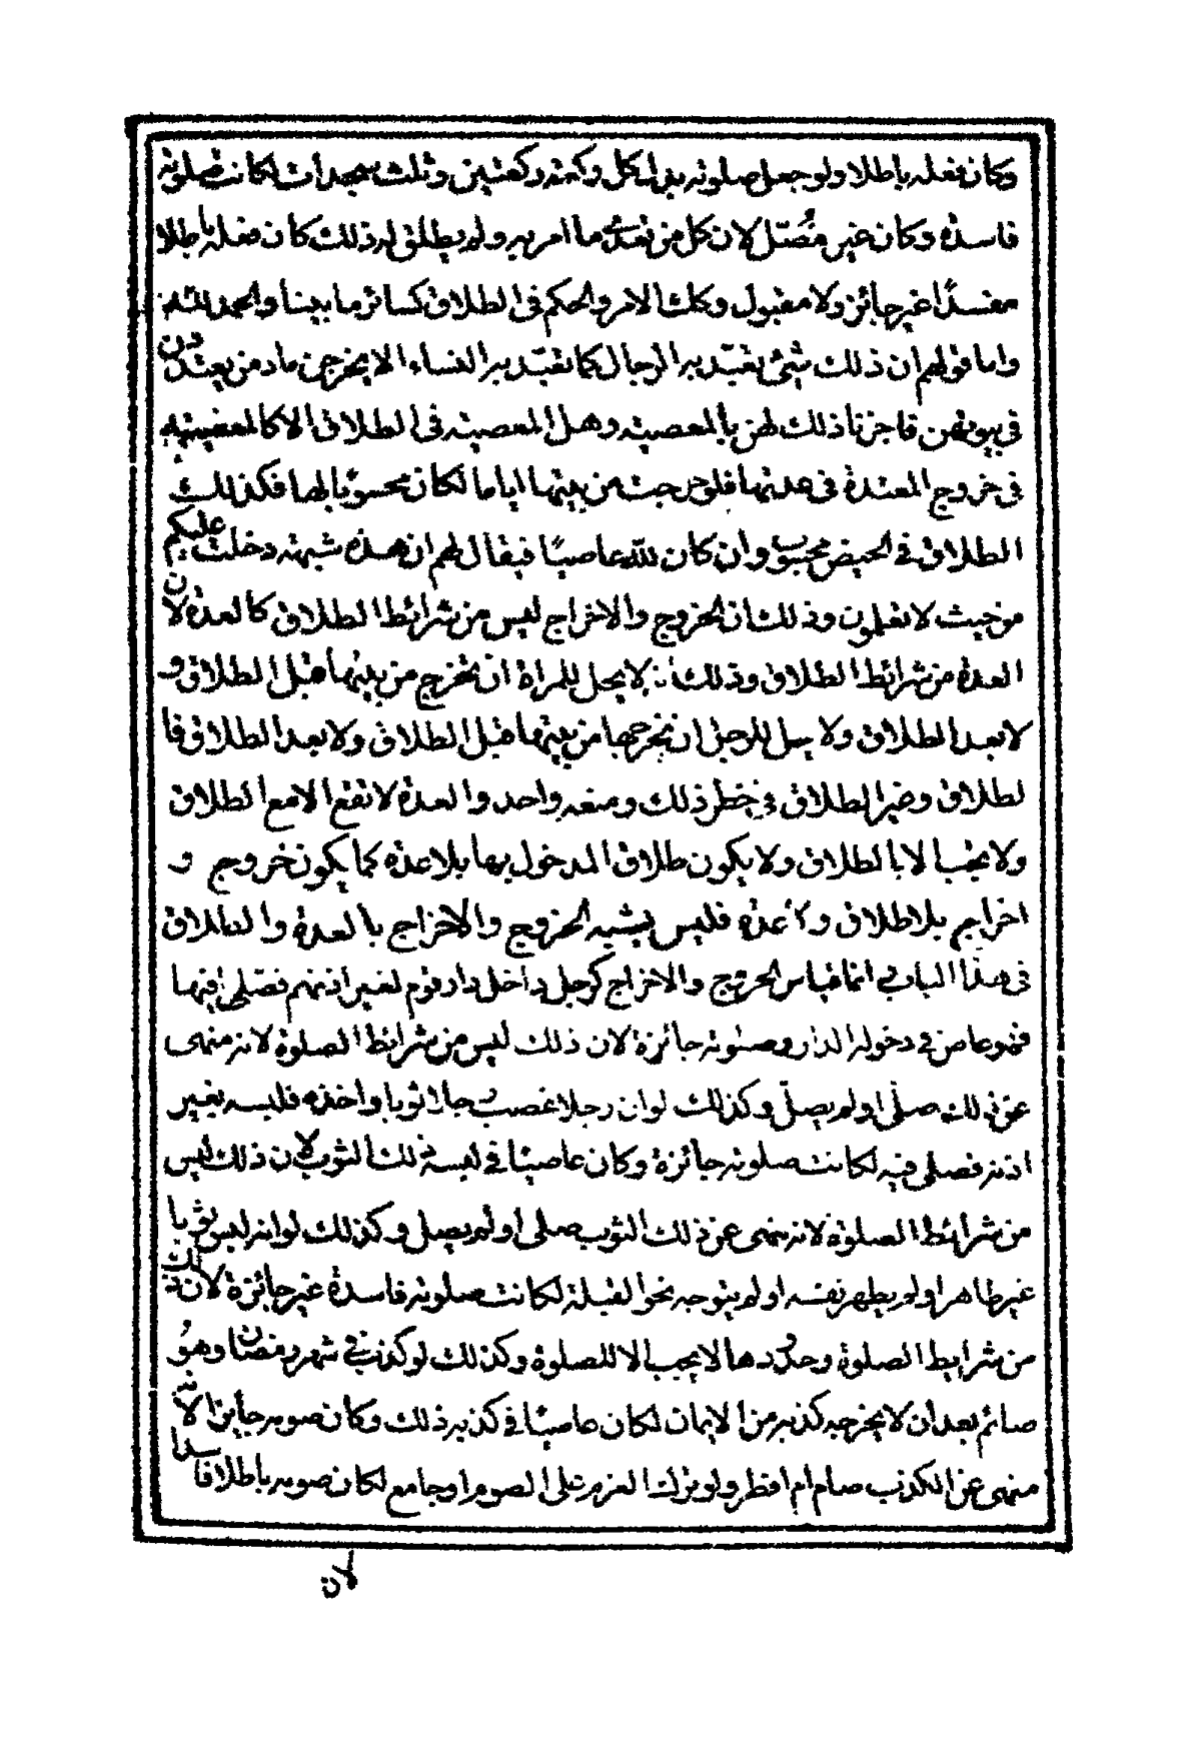 وكان فعله باطلا ولو جعل صلوته بدل كل ركعة ركعتين وثلث سجدات لكانت صلوته
فاسدة وكان غير مصل لان كل من تعدى ما امر به ولم يطلق له ذلك كان فعله باطلا
مفسدا غير جائز ولا مقبول وكك الامر والحكم فى الطلاق كسائر ما بينا والحمد لله
واما قولهم ان ذلك شئ تعبد به الرجال كما تعبد به النساء الا يخرجن مادمن يعتددن
فى بيوتهن فاجزنا ذلك لهن بالمعصية وهل المعصية فى الطلاق الا كالمعصية
فى خروج المعتدة فى عدتها فلو خرجت من بيتها اياما لكان محسوبا لها فكذلك
الطلاق فى الحيض محسوب وان كان لله عاصيا فيقال لهم ان هذه شبهة دخلت عليكم
من حيث لا تعلمون وذلك ان الخروج والاخراج ليس من شرائط الطلاق كالعدة لان
العدة من شرائط الطلاق وذلك انه لا يحل للمراة ان تخرج من بيتها قبل الطلاق و
لا بعد الطلاق ولا يحل للرجل ان يخرجها من بيتها قبل الطلاق ولا بعد الطلاق فا
لطلاق وغير الطلاق فى حظر ذلك ومنعه واحد والعدة لا تقع الا مع الطلاق
ولا تجب الا بالطلاق ولا يكون طلاق المدخول بها بلا عدة كما يكون خروج و
اخراج بلا طلاق ولا عدة فليس يشبه الخروج والاخراج بالعدة والطلاق
فى هذا الباب انما قياس الخروج والاخراج كرجل داخل دار قوم بغير اذنهم فصلى فيها
فهو عاص فى دخوله الدار وصلوته جائزة لان ذلك ليس من شرائط الصلوة لانه منهى
عن ذلك صلى او لم يصل وكذلك لو ان رجلا غصب رجلا ثوبا واخذه فلبسه بغير
اذنه فصلى فيه لكانت صلوته جائزة وكان عاصيا فى لبسه ذلك الثوب لان ذلك ليس
من شرائط الصلوة لانه منهى عن ذلك الثوب صلى او لم يصل وكذلك لو انه لبس ثوبا
غير طاهر او لم يطهر نفسه او لم يتوجه نحو القبلة لكانت صلوته فاسدة غير جائزة لان ذلك
من شرايط الصلوة وحدودها لا يجب الا للصلوة وكذلك لو كذب فى شهر رمضان وهو
صائم بعد ان لا يخرجه كذبه من الايمان لكان عاصيا فى كذبه ذلك وكان صومه جائزا لانه
منهى عن الكذب صام ام افطر ولو ترك العزم على الصوم او جامع لكان صومه باطلا فاسدا
لان